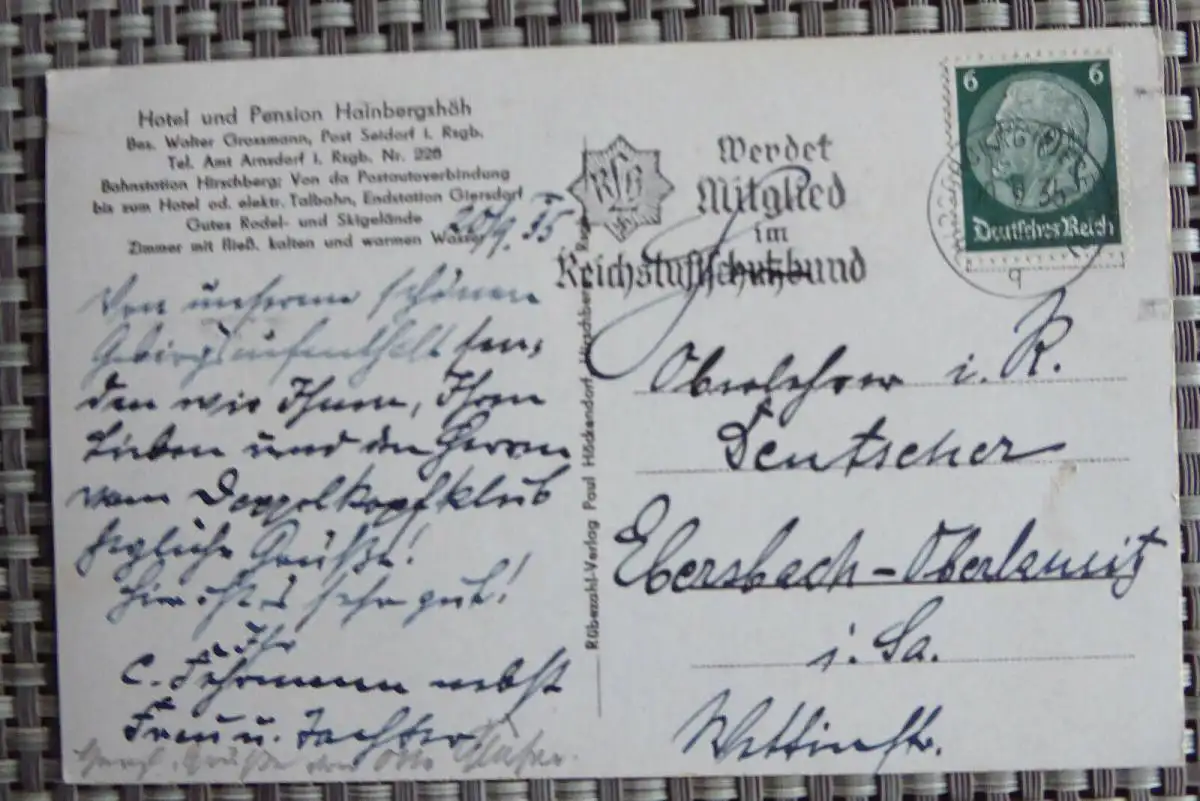 Hotel und Pension Hainbergshöh
Bes. Walter Grossmann, Post Seidorf i. Rsgb.
Tel. Amt Arnsdorf i. Rsgb. Nr. 226
Bahnstation Hirschberg: Von da Postautoverbindung
bis zum Hotel od. elektr. Talbahn, Endstation Giersdorf
Gutes Rodel- und Skigelände
Zimmer mit fließ. kalten und warmen Wasser
20/9. 35
Von unserem schönen
Gebirgsaufenthalt sen-
den wir Ihnen, Ihren
Lieben und den Herren
vom Doppelkopfklub
herzliche Grüße!
Hier ist's sehr gut!
Ihr
C. Fuhrmann nebst
Frau u. Tochter
Herzl. Grüße von Otto
Rübezahl-Verlag Paul Höckendorf, Hirschberg Rsgb.
RLB
Werdet
Mitglied
im
Reichsluftschutzbund
6 6
Deutsches Reich
9. 35
Oberlehrer i. R.
Deutscher
Ebersbach-Oberlausitz
i. Sa.
Wettinstr.